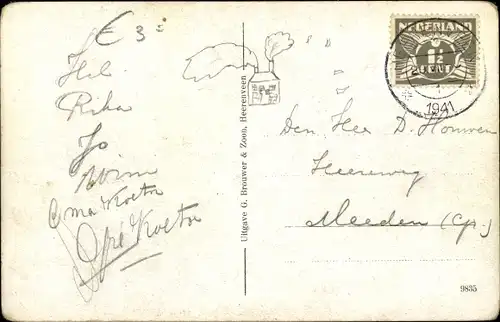 € 3=
Hl.
Rika
Jo
Wim
Oma Koetze
Opa Koetze
Uitgave G. Brouwer & Zoon, Heerenveen
NEDERLAND
1½
CENT
1941
Den Heer D. Houwen
Heereweg
Meeden (Gr.)
9835